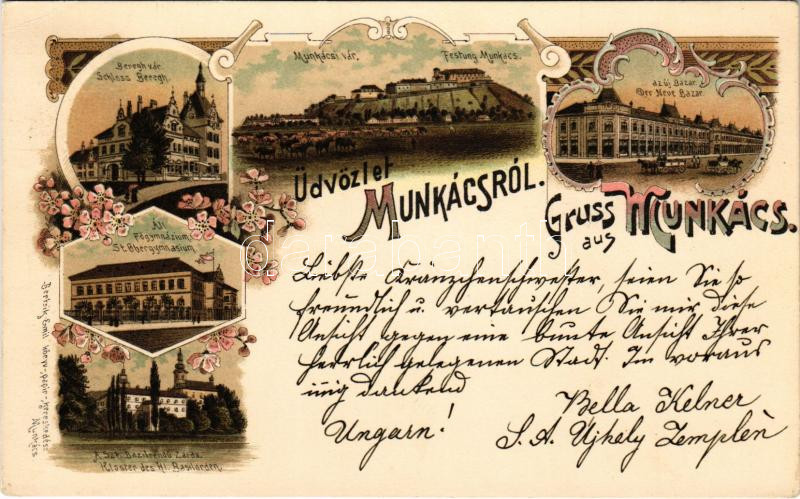 Beregh vár.
Schloss Beregh.
Munkácsi vár.
Festung Munkács.
az új Bazár.
Der Neue Bazar.
Üdvözlet
MUNKÁCSRÓL.
Gruss
aus
MUNKÁCS.
Áll.
Főgymnázium.
St. Obergymnasium.
A Szt. Bazilrendű Zárda.
Kloster des Hl. Basilorden.
Bertsik Emil könyv-, papir-, kereskedész Munkács
Liebste Kränzchenschwester, seien Sie so
freundlich u. vertauschen Sie mir diese
Ansicht gegen eine bunte Ansicht Ihrer
herrlich gelegenen Stadt. Im voraus
innig dankend
Bella Kelner
Ungarn! S. A. Ujhely Zemplèn
darabanth